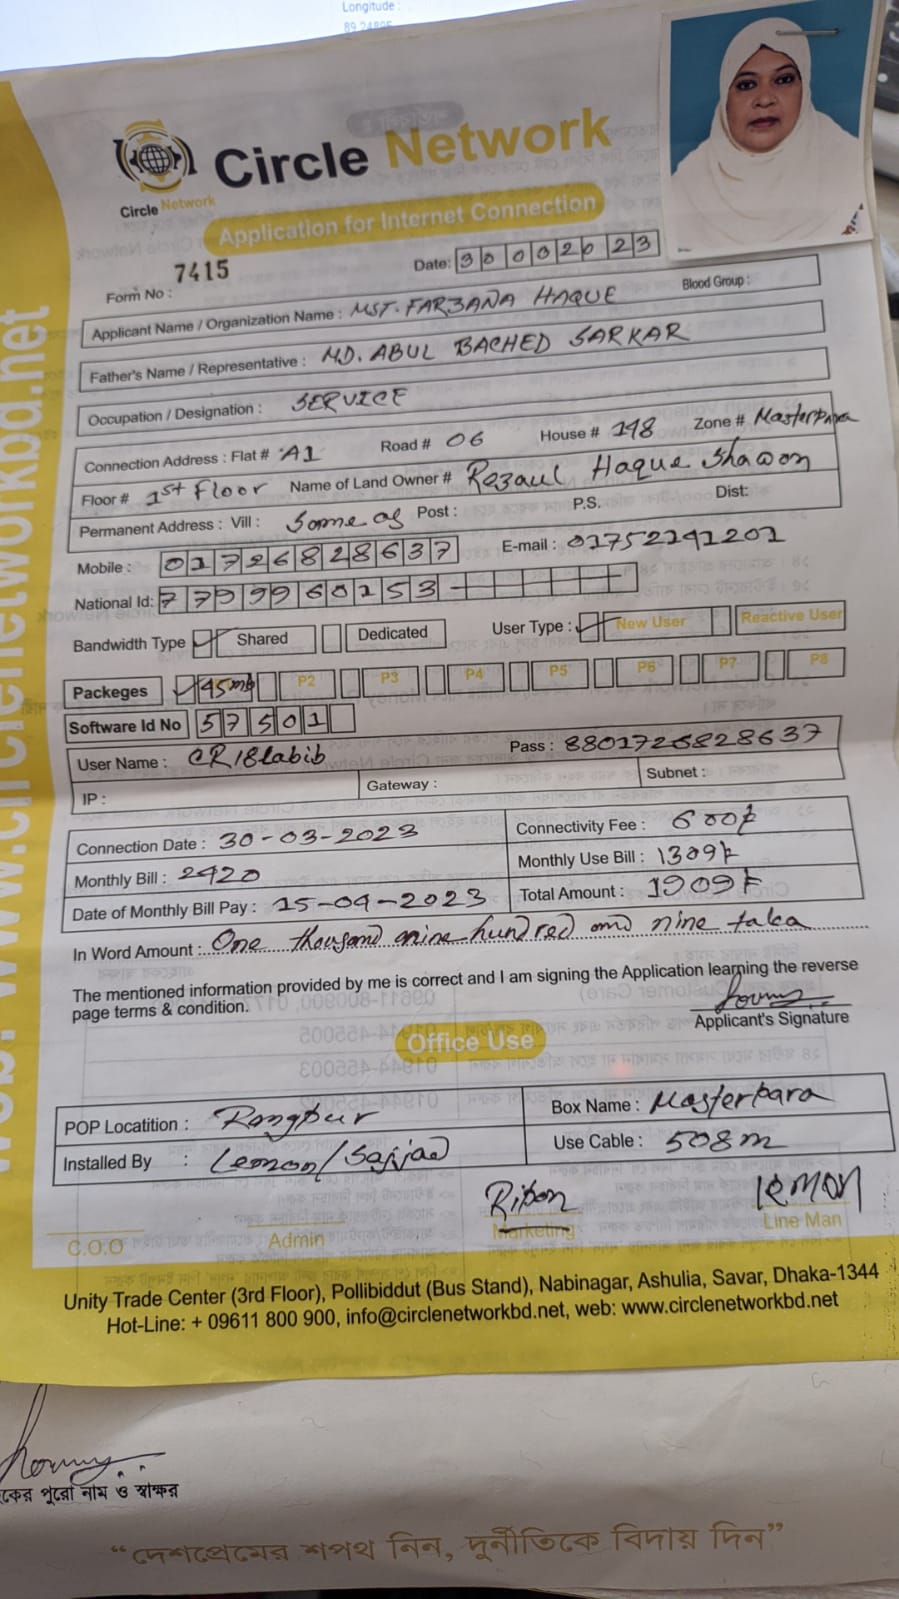 Longitude :
Circle Network
Circle Network
Application for Internet Connection
Form No : 7415
Date: 30 00 2023
Applicant Name / Organization Name : MST. FARZANA HAQUE Blood Group :
Father's Name / Representative : MD. ABUL BACHED SARKAR
Occupation / Designation : SERVICE
Connection Address : Flat # A1 Road # 06 House # 148 Zone # Masterpara
Floor # 1st Floor Name of Land Owner # Rezaul Haque Shawon
Permanent Address : Vill : Same as Post : P.S. Dist:
Mobile : 01726828637 E-mail : 01752141201
National Id: 7799960153
Bandwidth Type Shared Dedicated User Type : New User Reactive User
Packeges 45mb P2 P3 P4 P5 P6 P7 P8
Software Id No 57501
User Name : CR18labib Pass : 8801726828637
IP : Gateway : Subnet :
Connection Date : 30-03-2023 Connectivity Fee : 600৳
Monthly Bill : 2420 Monthly Use Bill : 1309৳
Date of Monthly Bill Pay : 15-04-2023 Total Amount : 1909৳
In Word Amount : One thousand nine hundred and nine taka
The mentioned information provided by me is correct and I am signing the Application learning the reverse
page terms & condition.
Applicant's Signature
Office Use
POP Locatition : Rangpur Box Name : Masterpara
Installed By : Lemon/Sajjad Use Cable : 508m
Ripon LEMON
C.O.O Admin Marketing Line Man
Unity Trade Center (3rd Floor), Pollibiddut (Bus Stand), Nabinagar, Ashulia, Savar, Dhaka-1344
Hot-Line: + 09611 800 900, info@circlenetworkbd.net, web: www.circlenetworkbd.net
পুরো নাম ও স্বাক্ষর
“দেশপ্রেমের শপথ নিন, দুর্নীতিকে বিদায় দিন”